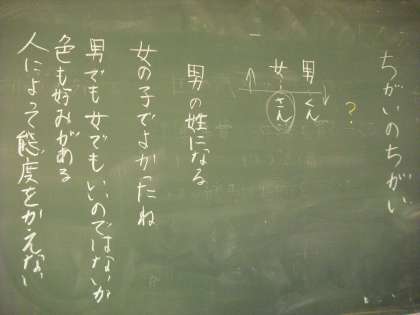 ちがいのちがい
?
男 くん
女 さん
男の姓になる
女の子でよかったね
男でも女でもいいのではないか
色も好みがある
人によって態度をかえない